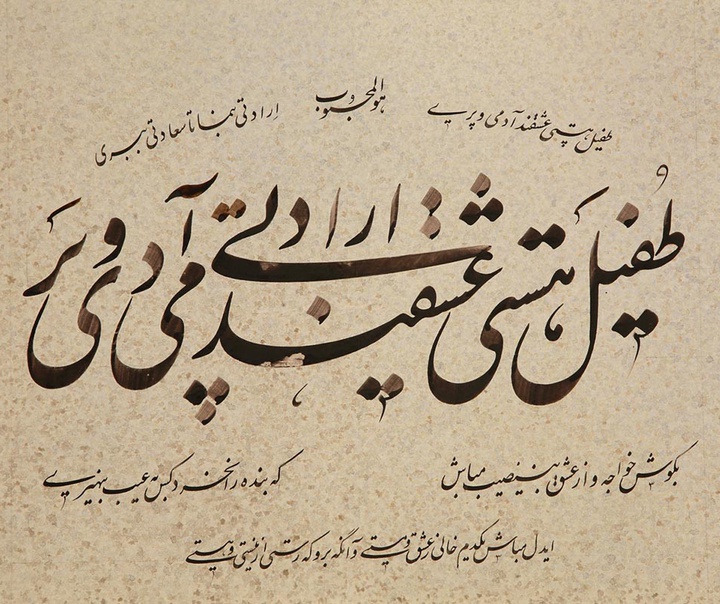 هوالمحبوب
طفیل هستی عشقند آدمی و پری
ارادتی بنما تا سعادتی ببری
طفیل هستی عشقند آدمی و پری ارادتی
بکوش خواجه و از عشق بی نصیب مباش
که بنده را نخرد کس به عیب بی هنری
ایدل مباش یکدم خالی ز عشق و مستی وآنگه برو که رستی از نیستی و هستی